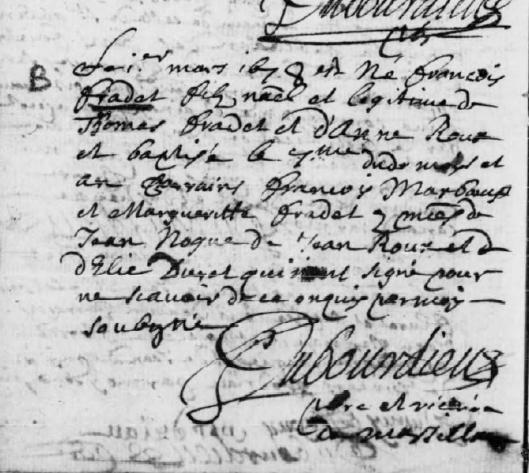 Dubourdieu
B
Le i.er mars 1678 est Né francois
fradet filz nael et legitime de
Thomas fradet et d'Anne Roux
et baptisé le 7.me dudt mois et
an parrains francois Marboeuf
et Margueritte fradet
Jean Nogue de Jean Roux et d
d'Elie Duret qui nont signé pour
ne scavoir de ce enquis par moy
soubsigné
Dubourdieu
pbre et vicaire